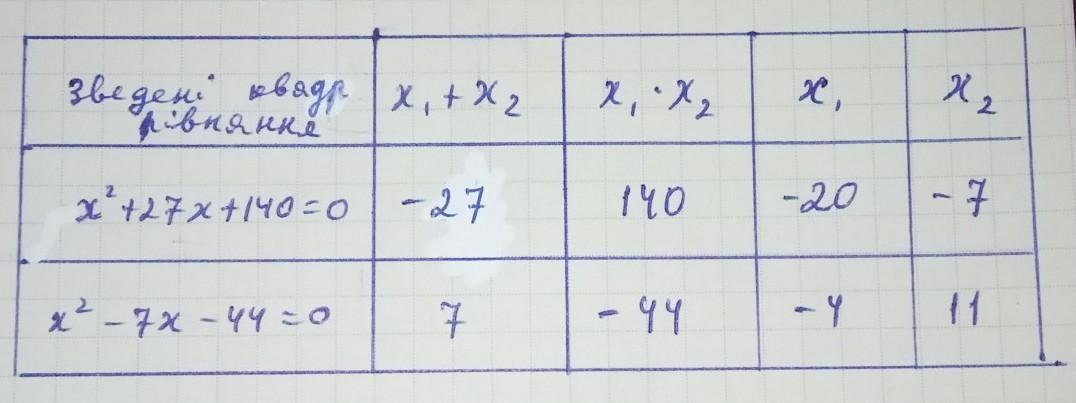 Зведені квадр рівняння x₁ + x₂ x₁ · x₂ x₁ x₂
x² + 27x + 140 = 0 -27 140 -20 -7
x² - 7x - 44 = 0 7 -44 -4 11